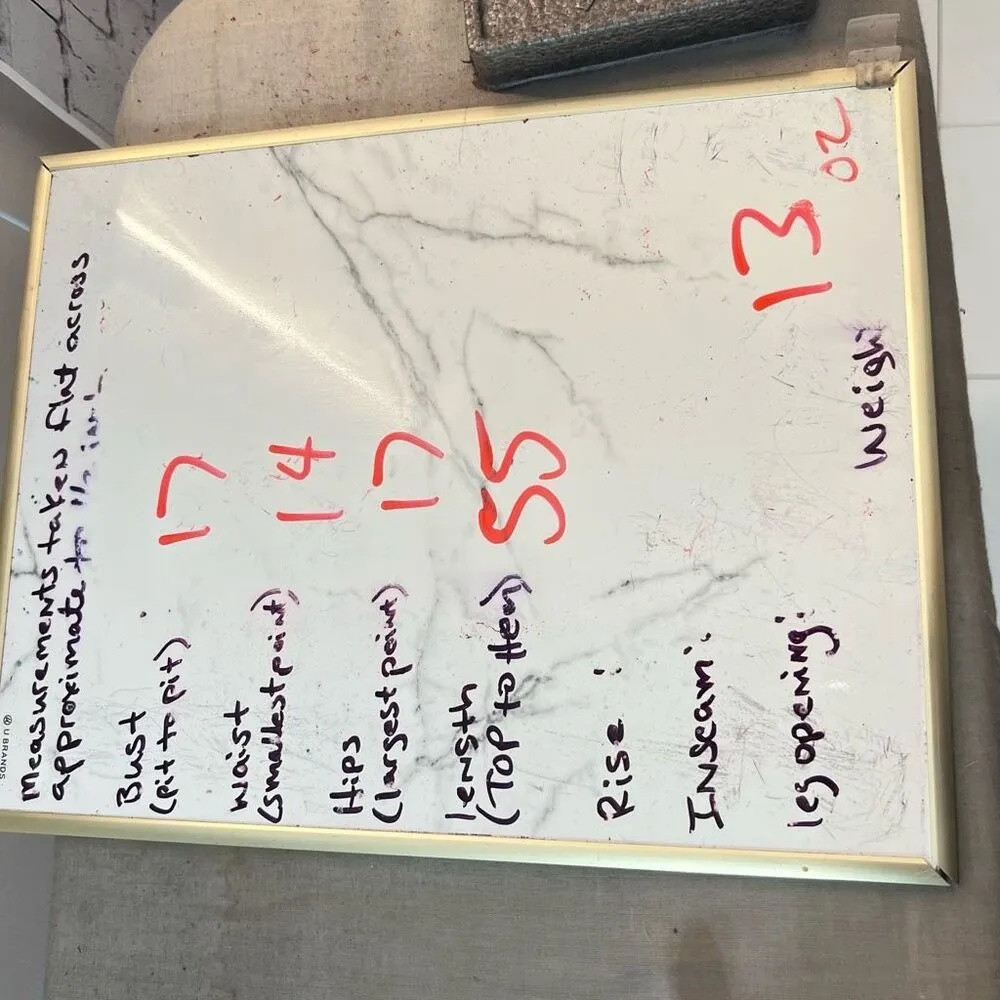 U BRANDS
Measurements taken flat across
approximate to 1/2 inch.
Bust
(pit to pit) 17
Waist
(smallest point) 14
Hips
(largest point) 17
length
(Top to Hem) 55
Rise:
Inseam:
leg opening:
Weight 13 oz